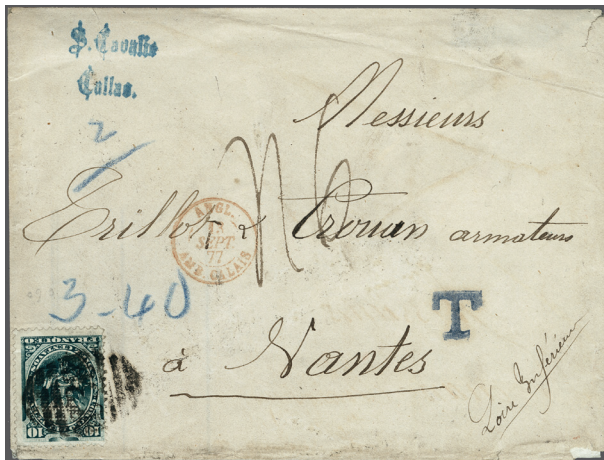 S. Cavallie
Callao.
2
Messieurs
Crillon & Crouan armateurs
ANGL.
SEPT.
77
AMB. CALAIS
3-40
T
à Nantes
Loire Inférieure
FRANQUEO
10